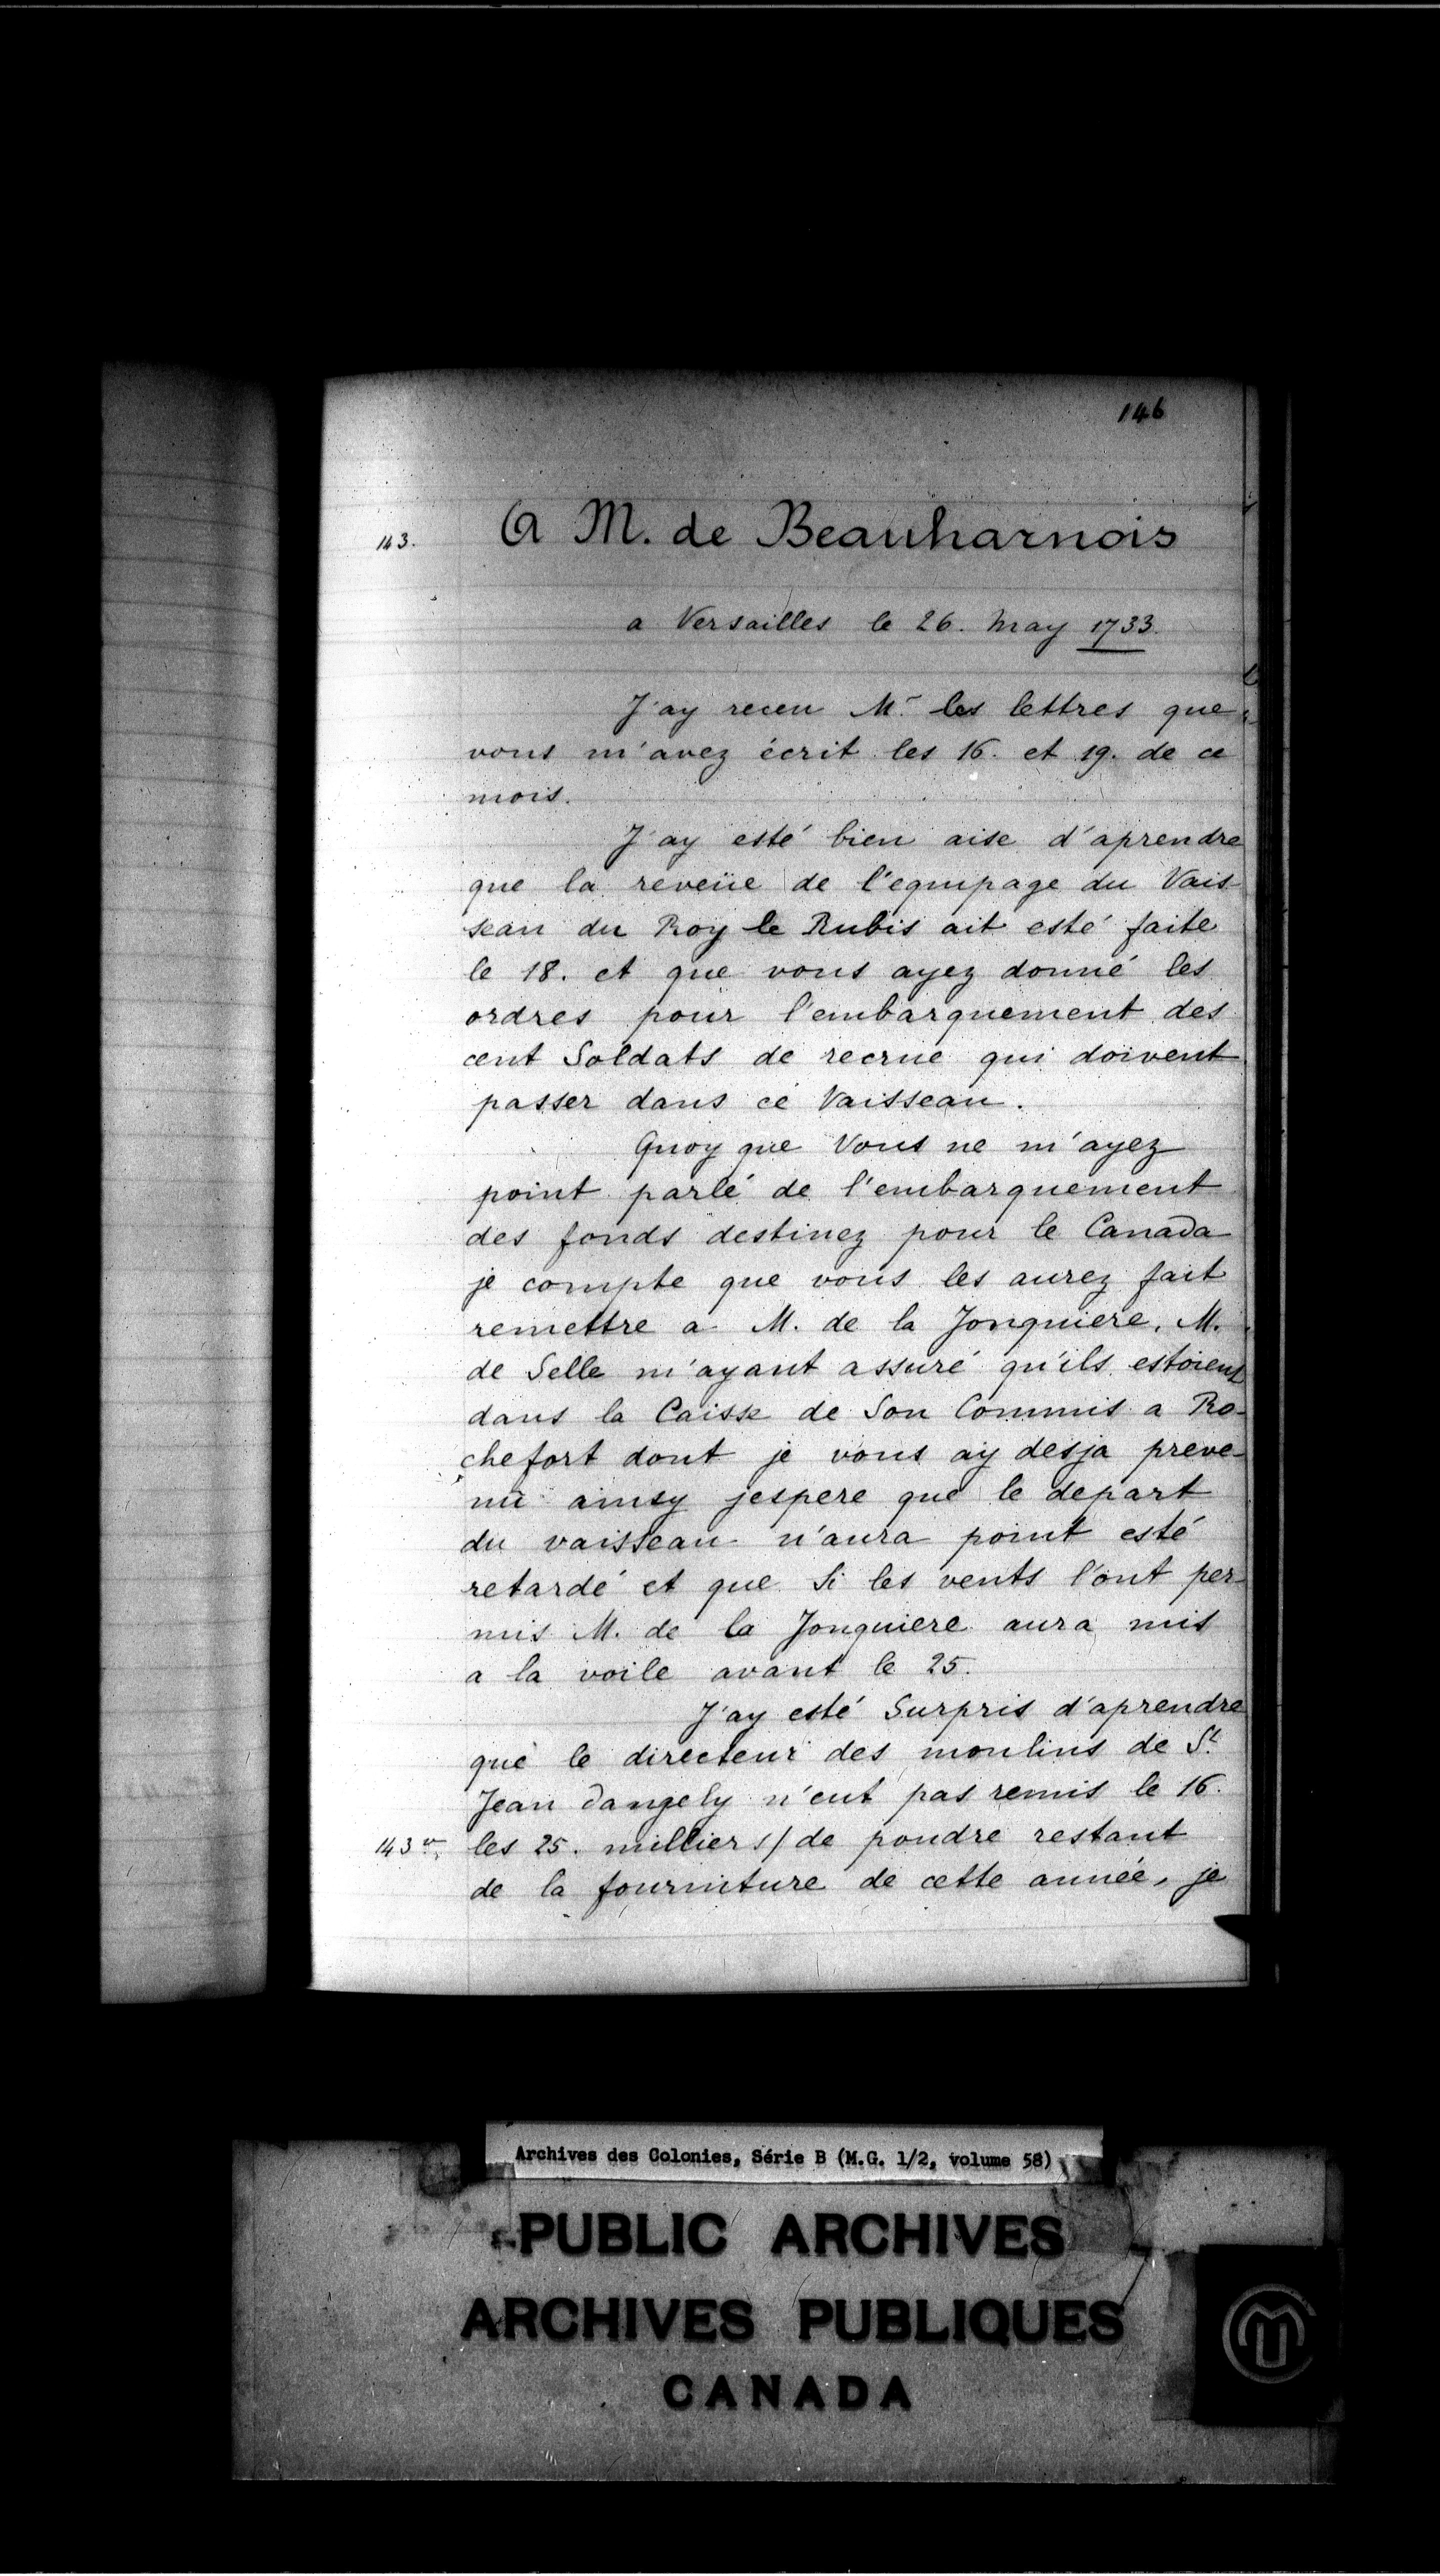 146
143. A M. de Beauharnois
a Versailles le 26. May 1733.
J'ay receu Mr. les lettres que
vous m'avez écrit les 16. et 19. de ce
mois.
J'ay esté bien aise d'aprendre
que la reveüe de l'equipage du Vais-
seau du Roy le Rubis ait esté faite
le 18. et que vous ayez donné les
ordres pour l'embarquement des
cent Soldats de recrue qui doivent
passer dans ce Vaisseau.
Quoy que Vous ne m'ayez
point parlé de l'embarquement
des fonds destinez pour le Canada
je compte que vous les aurez fait
remettre a M. de la Jonquiere. M.
de Selle m'ayant assuré qu'ils estoient
dans la Caisse de Son Commis a Ro-
chefort dont je vous ay desja preve-
nu ainsy jespere que le depart
du vaisseau n'aura point esté
retardé et que Si les vents l'ont per-
mis M. de la Jonquiere aura mis
a la voile avant le 25.
J'ay esté Surpris d'aprendre
que le directeur des moulins de St.
Jean dangely n'eut pas remis le 16.
143 vo. les 25. milliers/ de poudre restant
de la fourniture de cette année, je
Archives des Colonies, Série B (M.G. 1/2, volume 58)
PUBLIC ARCHIVES
ARCHIVES PUBLIQUES
CANADA